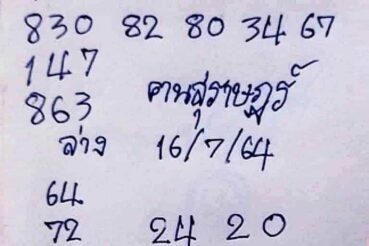 830 82 80 34 67
147
863 คนสุราษฎร์
ล่าง 16/7/64
64
72 24 20